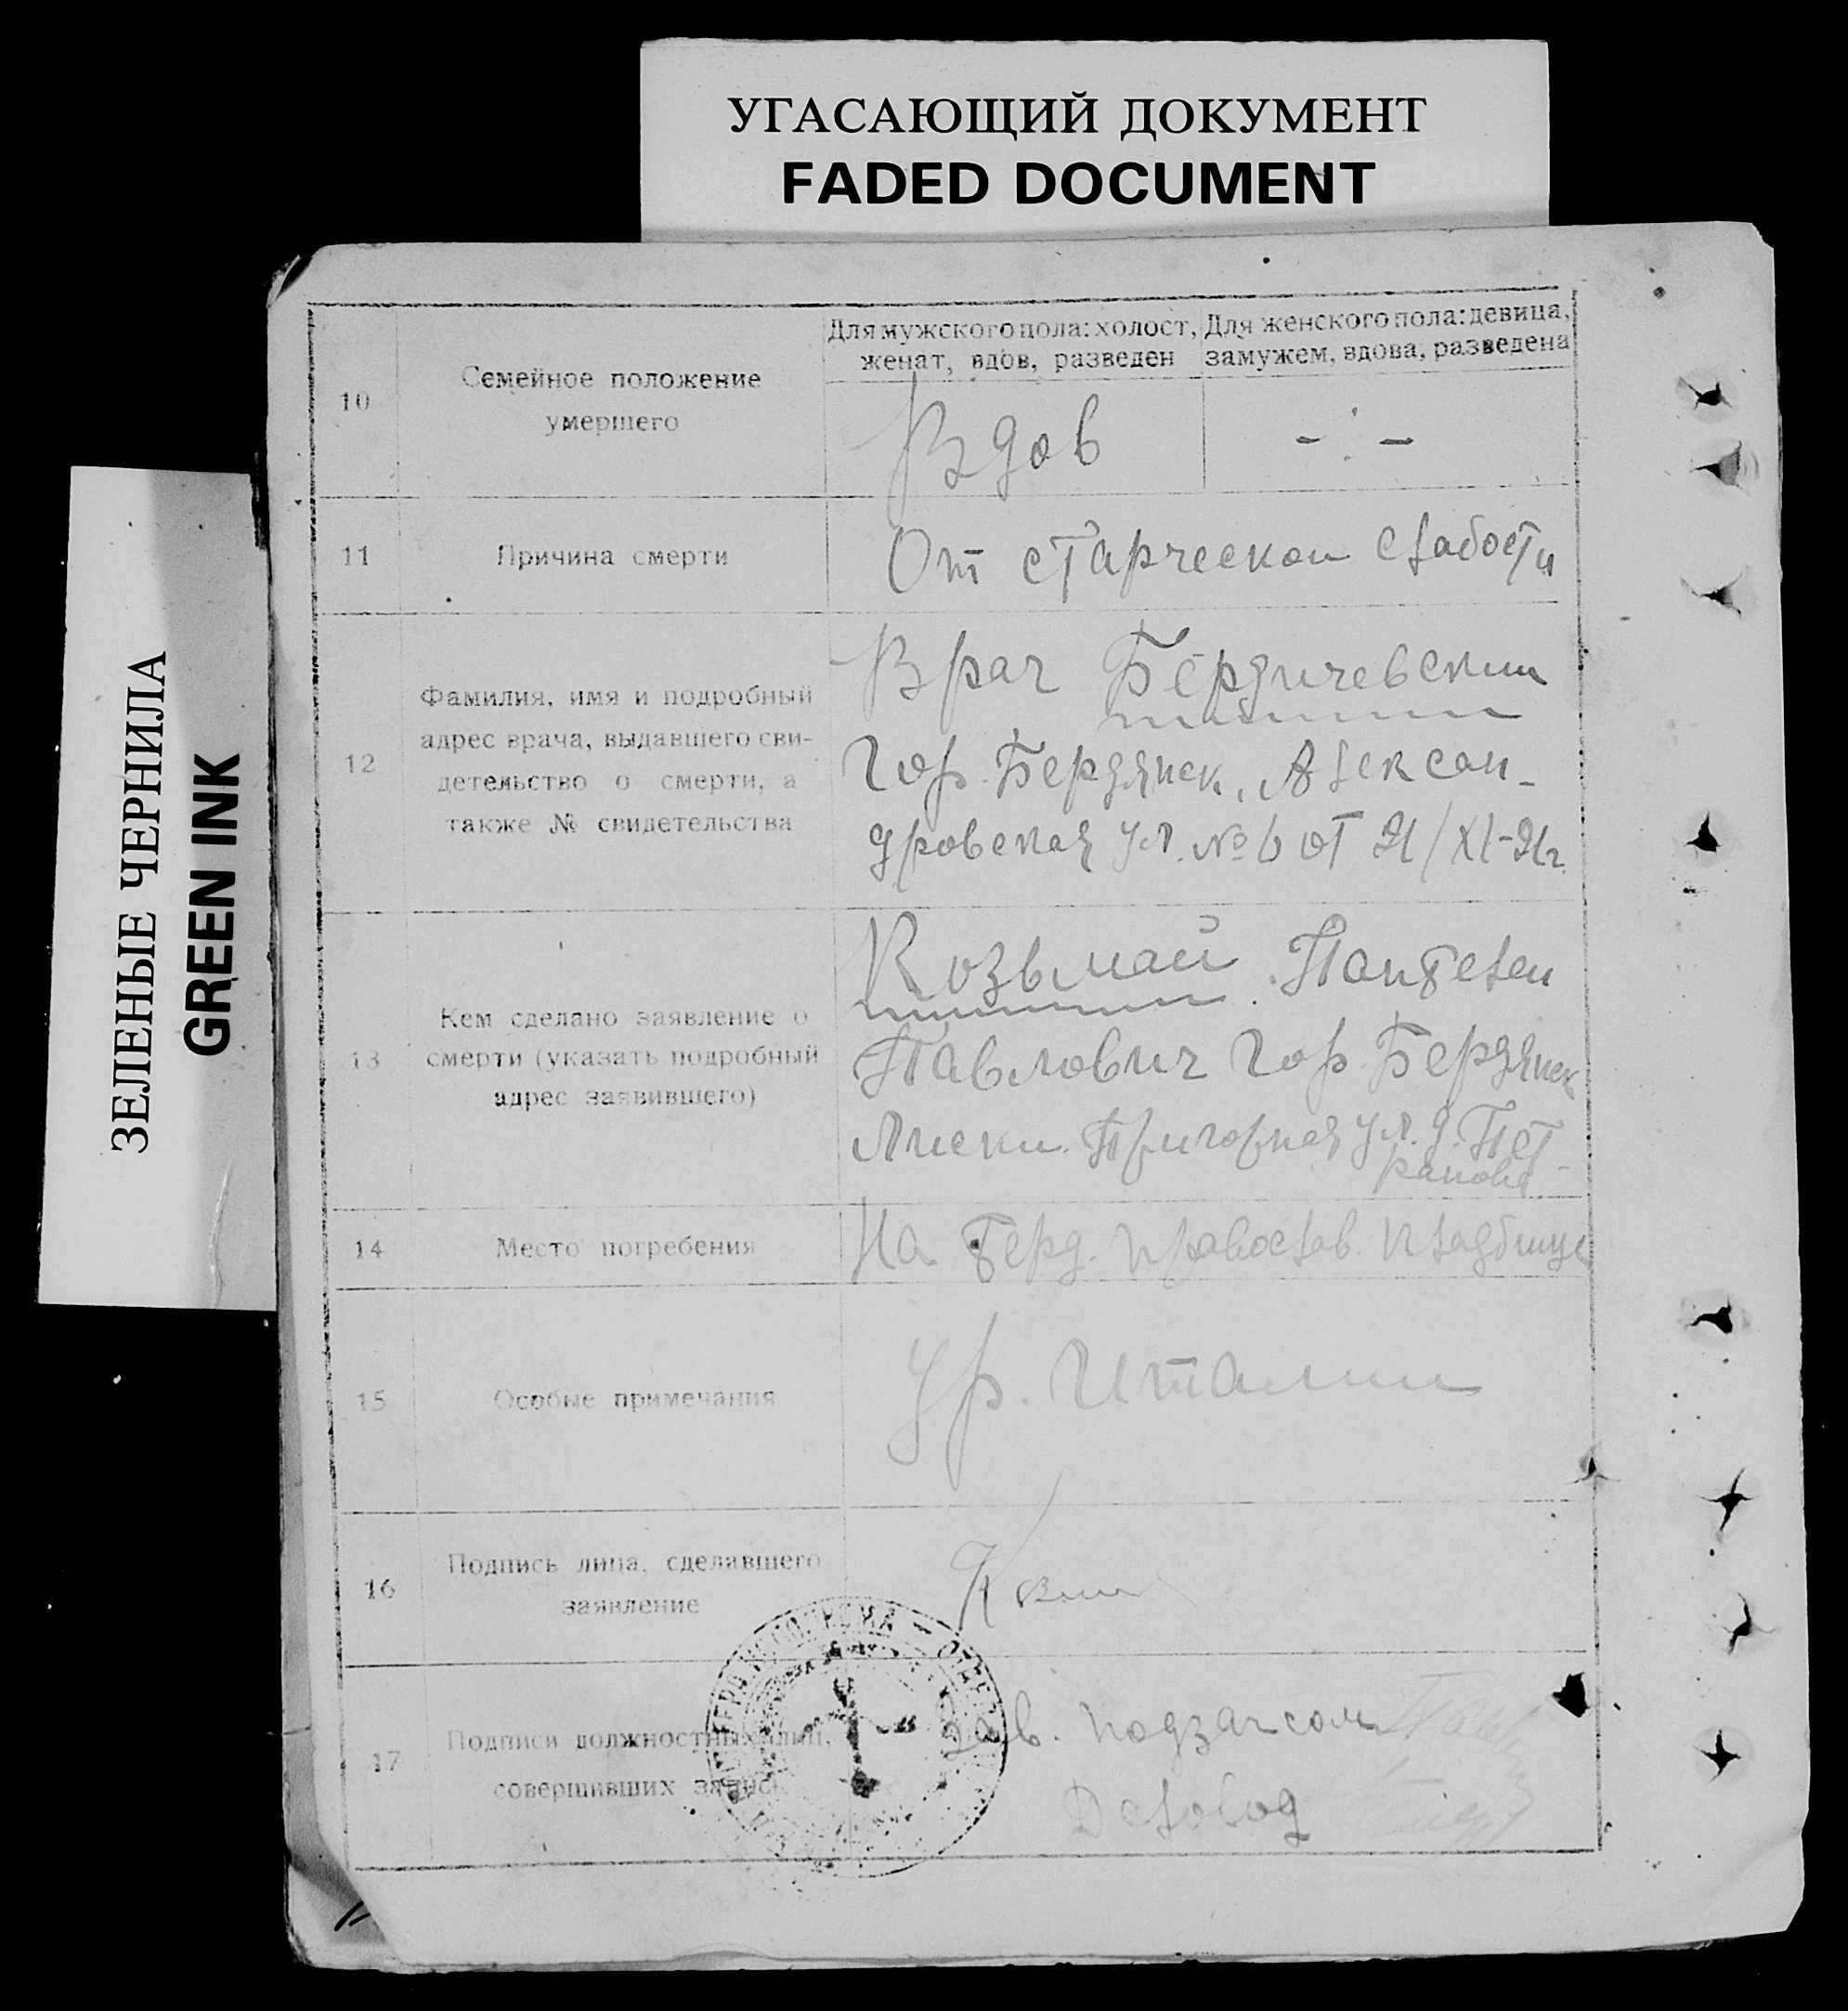 УГАСАЮЩИЙ ДОКУМЕНТ
FADED DOCUMENT
ЗЕЛЕНЫЕ ЧЕРНИЛА
GREEN INK
10
Семейное положение
умершего
Для мужского пола: холост,
женат, вдов, разведен
Для женского пола: девица,
замужем, вдова, разведена
Вдов
- . -
11
Причина смерти
От старческой слабости
12
Фамилия, имя и подробный
адрес врача, выдавшего сви-
детельство о смерти, а
также № свидетельства
Врач Бердичевский
Гор. Бердянск, Алексан-
дровская ул. № 6 от 21/XI-21г.
13
Кем сделано заявление о
смерти (указать подробный
адрес заявившего)
Козьмай Пантелей
Павлович Гор. Бердянск
Лиски Пригорная ул. д. Пет-
14
Место погребения
На Берд. православ. кладбище
15
Особые примечания
Ур. Италии
16
Подпись лица, сделавшего
заявление
17
Подписи должностных лиц,
совершивших запись
Зав. подзагсом
Деловод